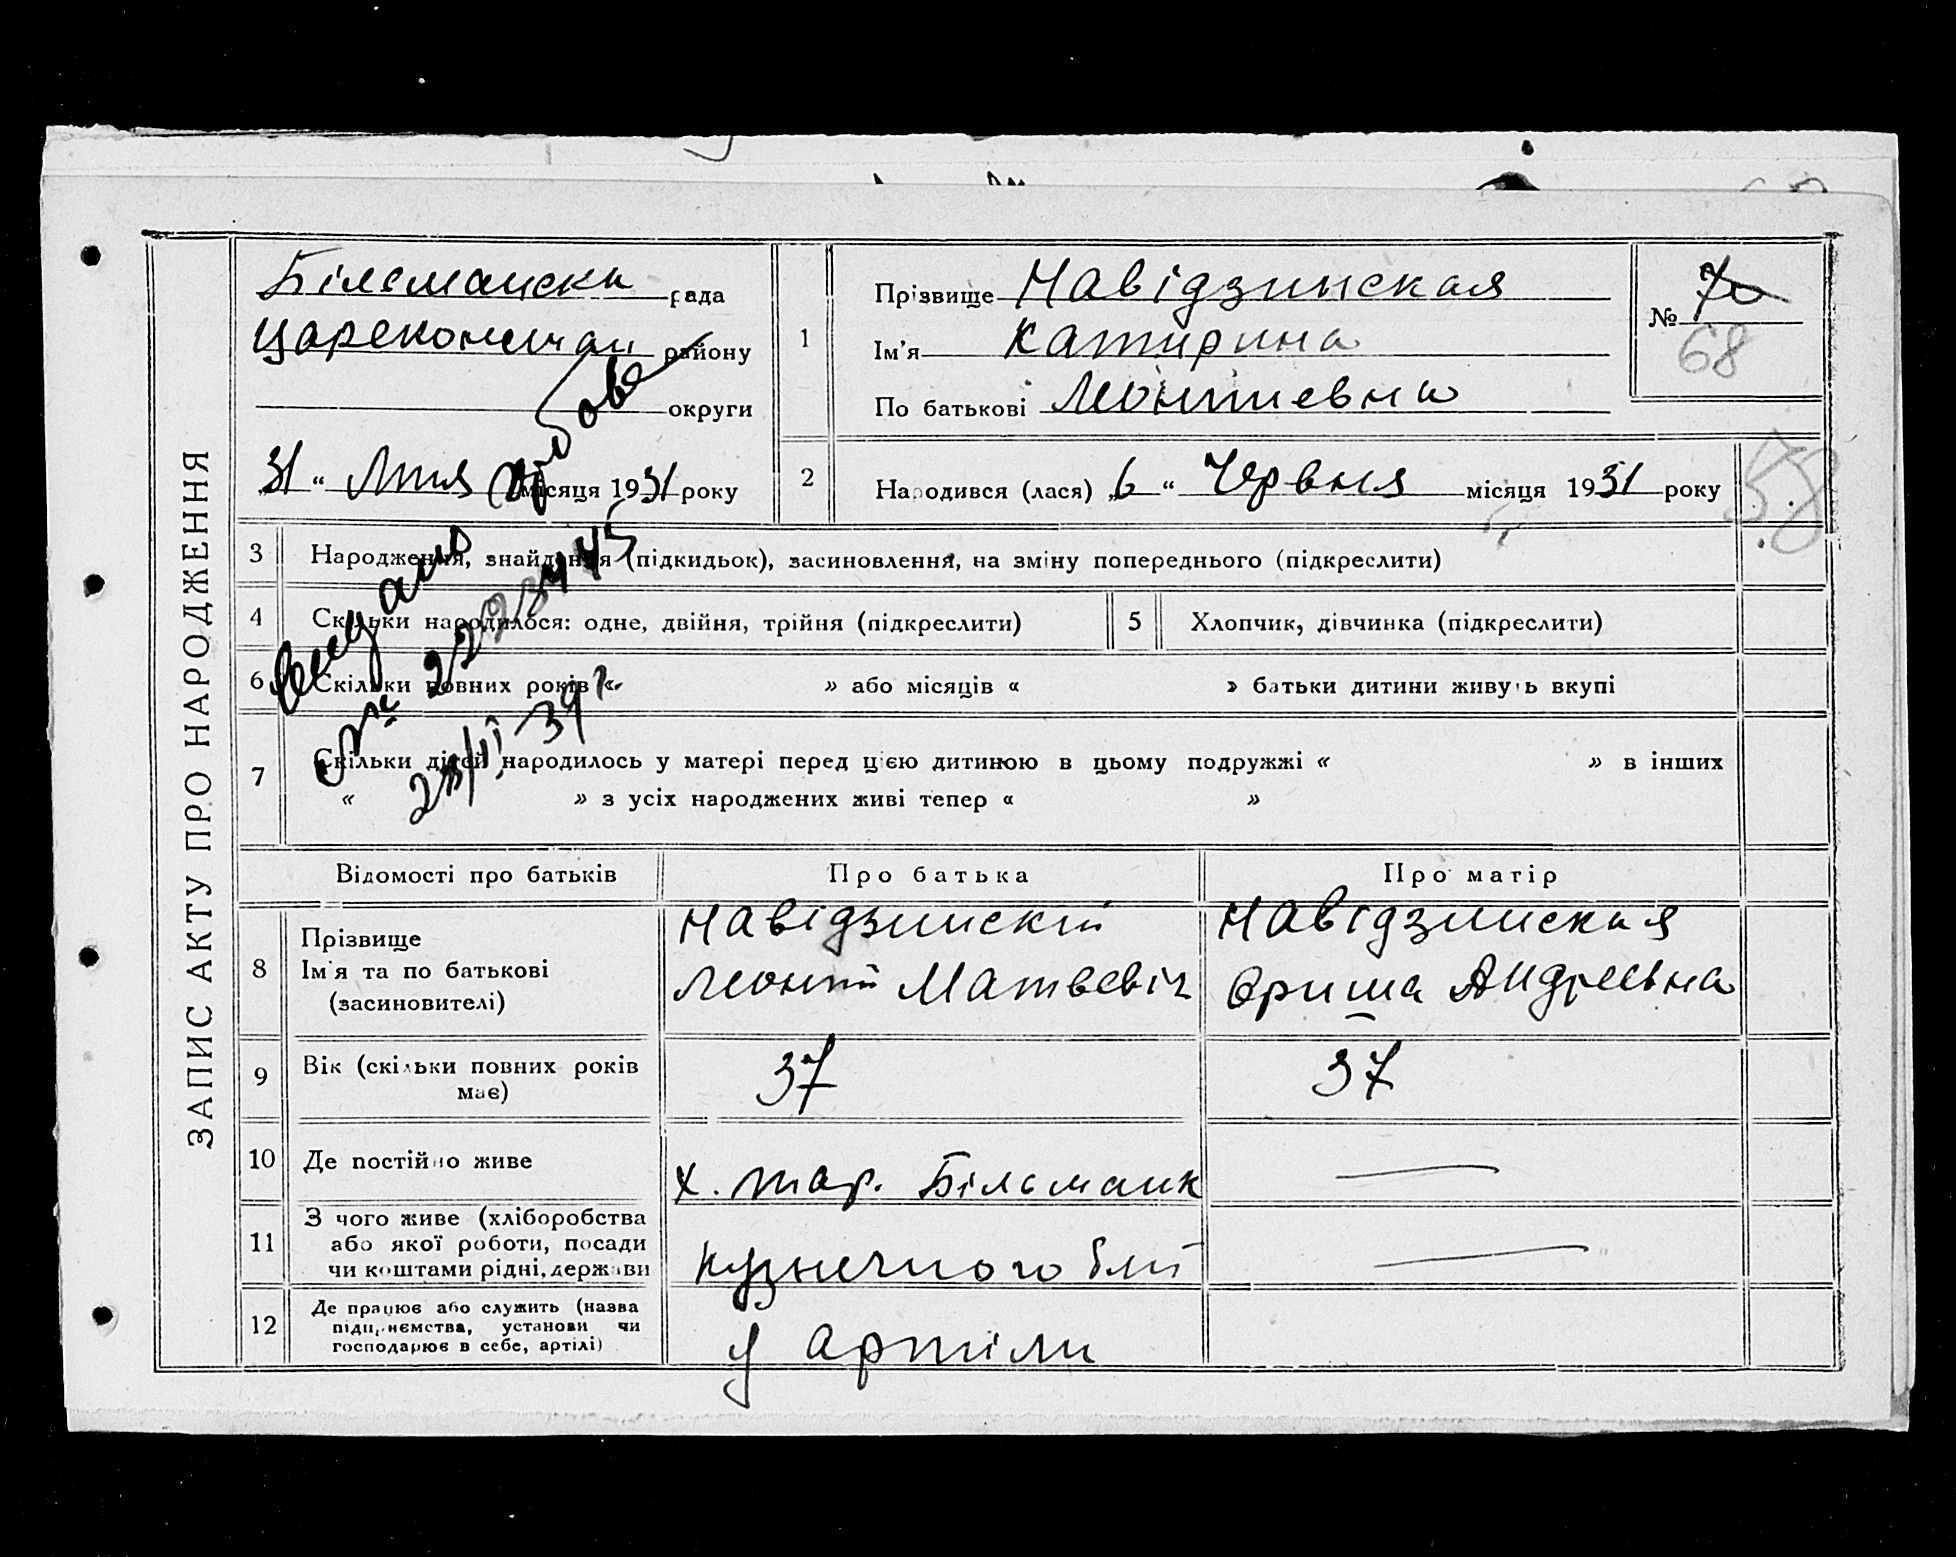 ЗАПИС АКТУ ПРО НАРОДЖЕННЯ
Більманска рада
Царекончан району
округи
„31“ Липя місяця 1931 року
1
Прізвище Навідзинская
Ім'я Катирина
По батькові Леонтиевна
№ 70
68
2
Народився (лася) „6“ Червня місяця 1931 року
58
3 Народження, знайдення (підкидьок), засиновлення, на зміну попереднього (підкреслити)
4 Скільки народилося: одне, двійня, трійня (підкреслити)
5 Хлопчик, дівчинка (підкреслити)
6 Скільки повних років « » або місяців « » батьки дитини живуть вкупі
7 Скільки дітей народилось у матері перед цією дитиною в цьому подружжі « » в інших
« » з усіх народжених живі тепер « »
Відомості про батьків Про батька Про матір
8 Прізвище
Ім'я та по батькові
(засиновителі)
Навідзинскій
Леонтій Матвєвіч
Навідзинская
Ориша Андреевна
9 Вік (скільки повних років
має)
37 37
10 Де постійно живе
х. тар. Більманк
11 З чого живе (хліборобства
або якої роботи, посади
чи коштами рідні, держави
кузнечного
12 Де працює або служить (назва
підприємства, установи чи
господарює в себе, артілі)
у артіли